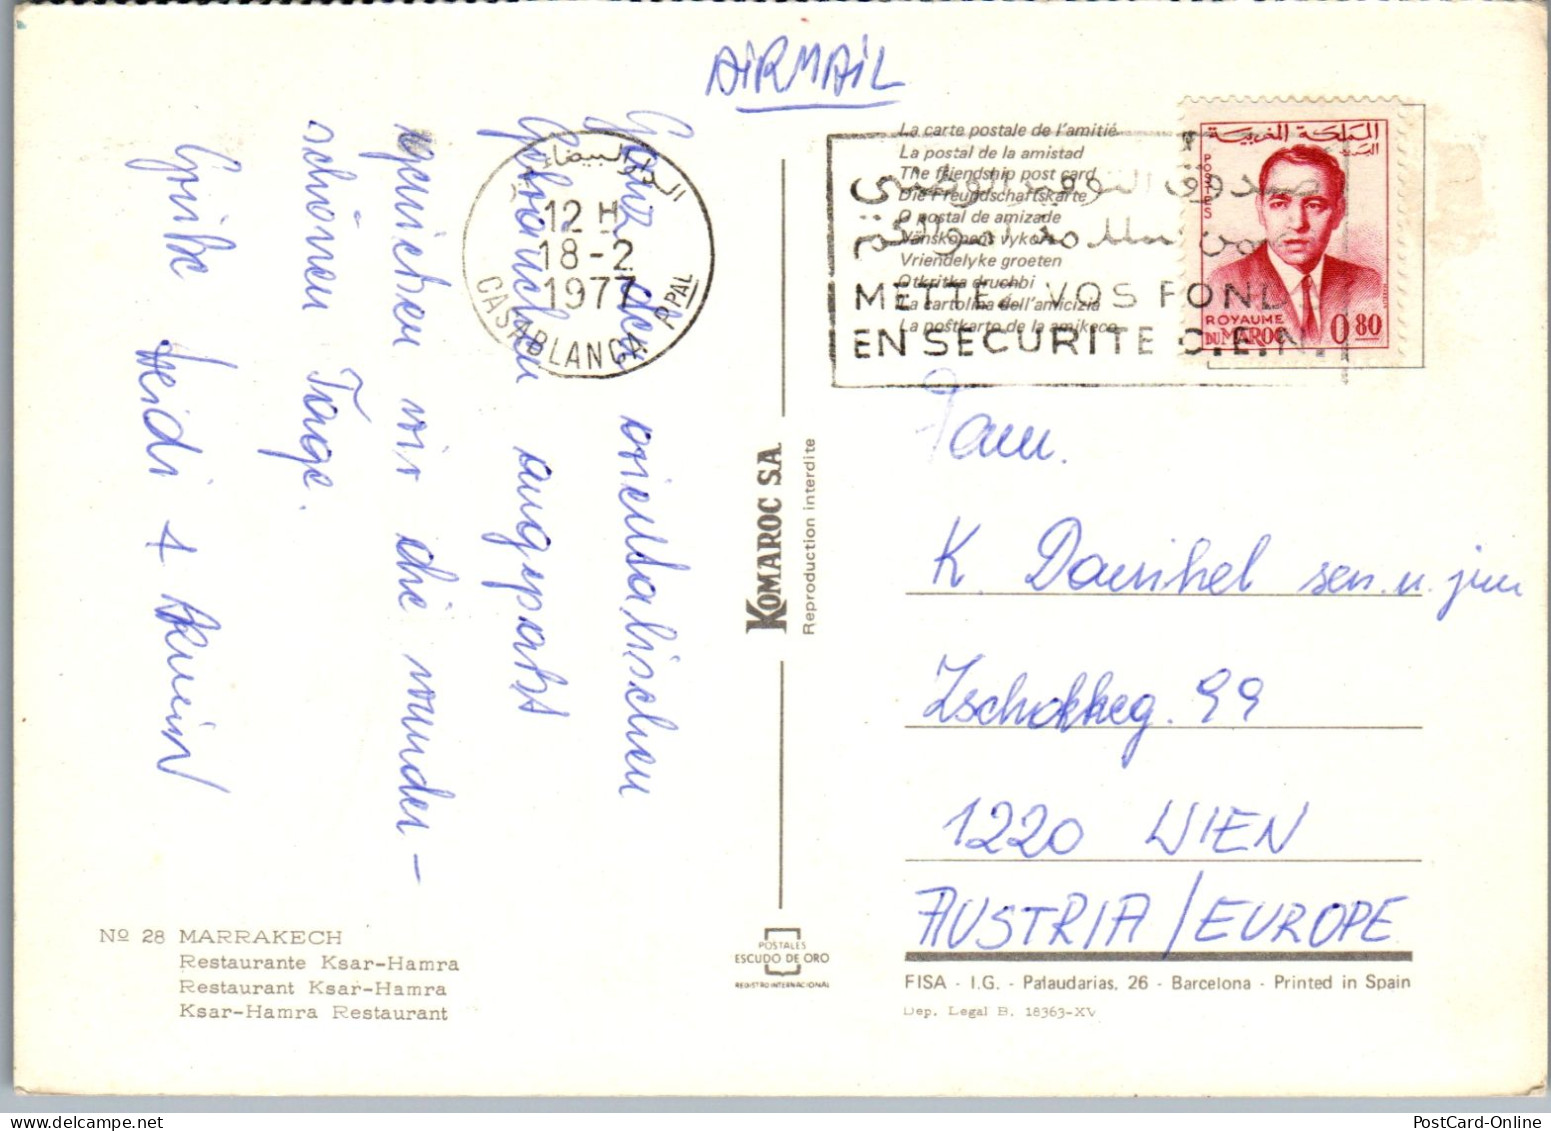 AIRMAIL
Ganz den orientalischen
Gebräuchen angepaßt
genießen wir die wunder-
schönen Tage.
Grüße Heidi + Erwin
الدار البيضاء
12 H
18-2
1977
CASABLANCA PPAL
La carte postale de l'amitié
La postal de la amistad
The friendship post card
Die Freundschaftskarte
O postal de amizade
Vänskapens vykort
Vriendelyke groeten
Otkritka druchbi
La cartolina dell'amicizia
La poŝtkarto de la amikeco
METTEZ VOS FONDS
EN SECURITE C.E.N.
المملكة المغربية
البريد
POSTES
ROYAUME
DU MAROC
0,80
Fam.
K Danihel sen. u. jun
Zschokkeg. 99
1220 WIEN
AUSTRIA / EUROPE
KOMAROC S.A.
Reproduction interdite
Nº 28 MARRAKECH
Restaurante Ksar-Hamra
Restaurant Ksar-Hamra
Ksar-Hamra Restaurant
POSTALES
ESCUDO DE ORO
REGISTRO INTERNACIONAL
FISA - I.G. - Palaudarias, 26 - Barcelona - Printed in Spain
Dep. Legal B. 18363-XV
PostCard-Online